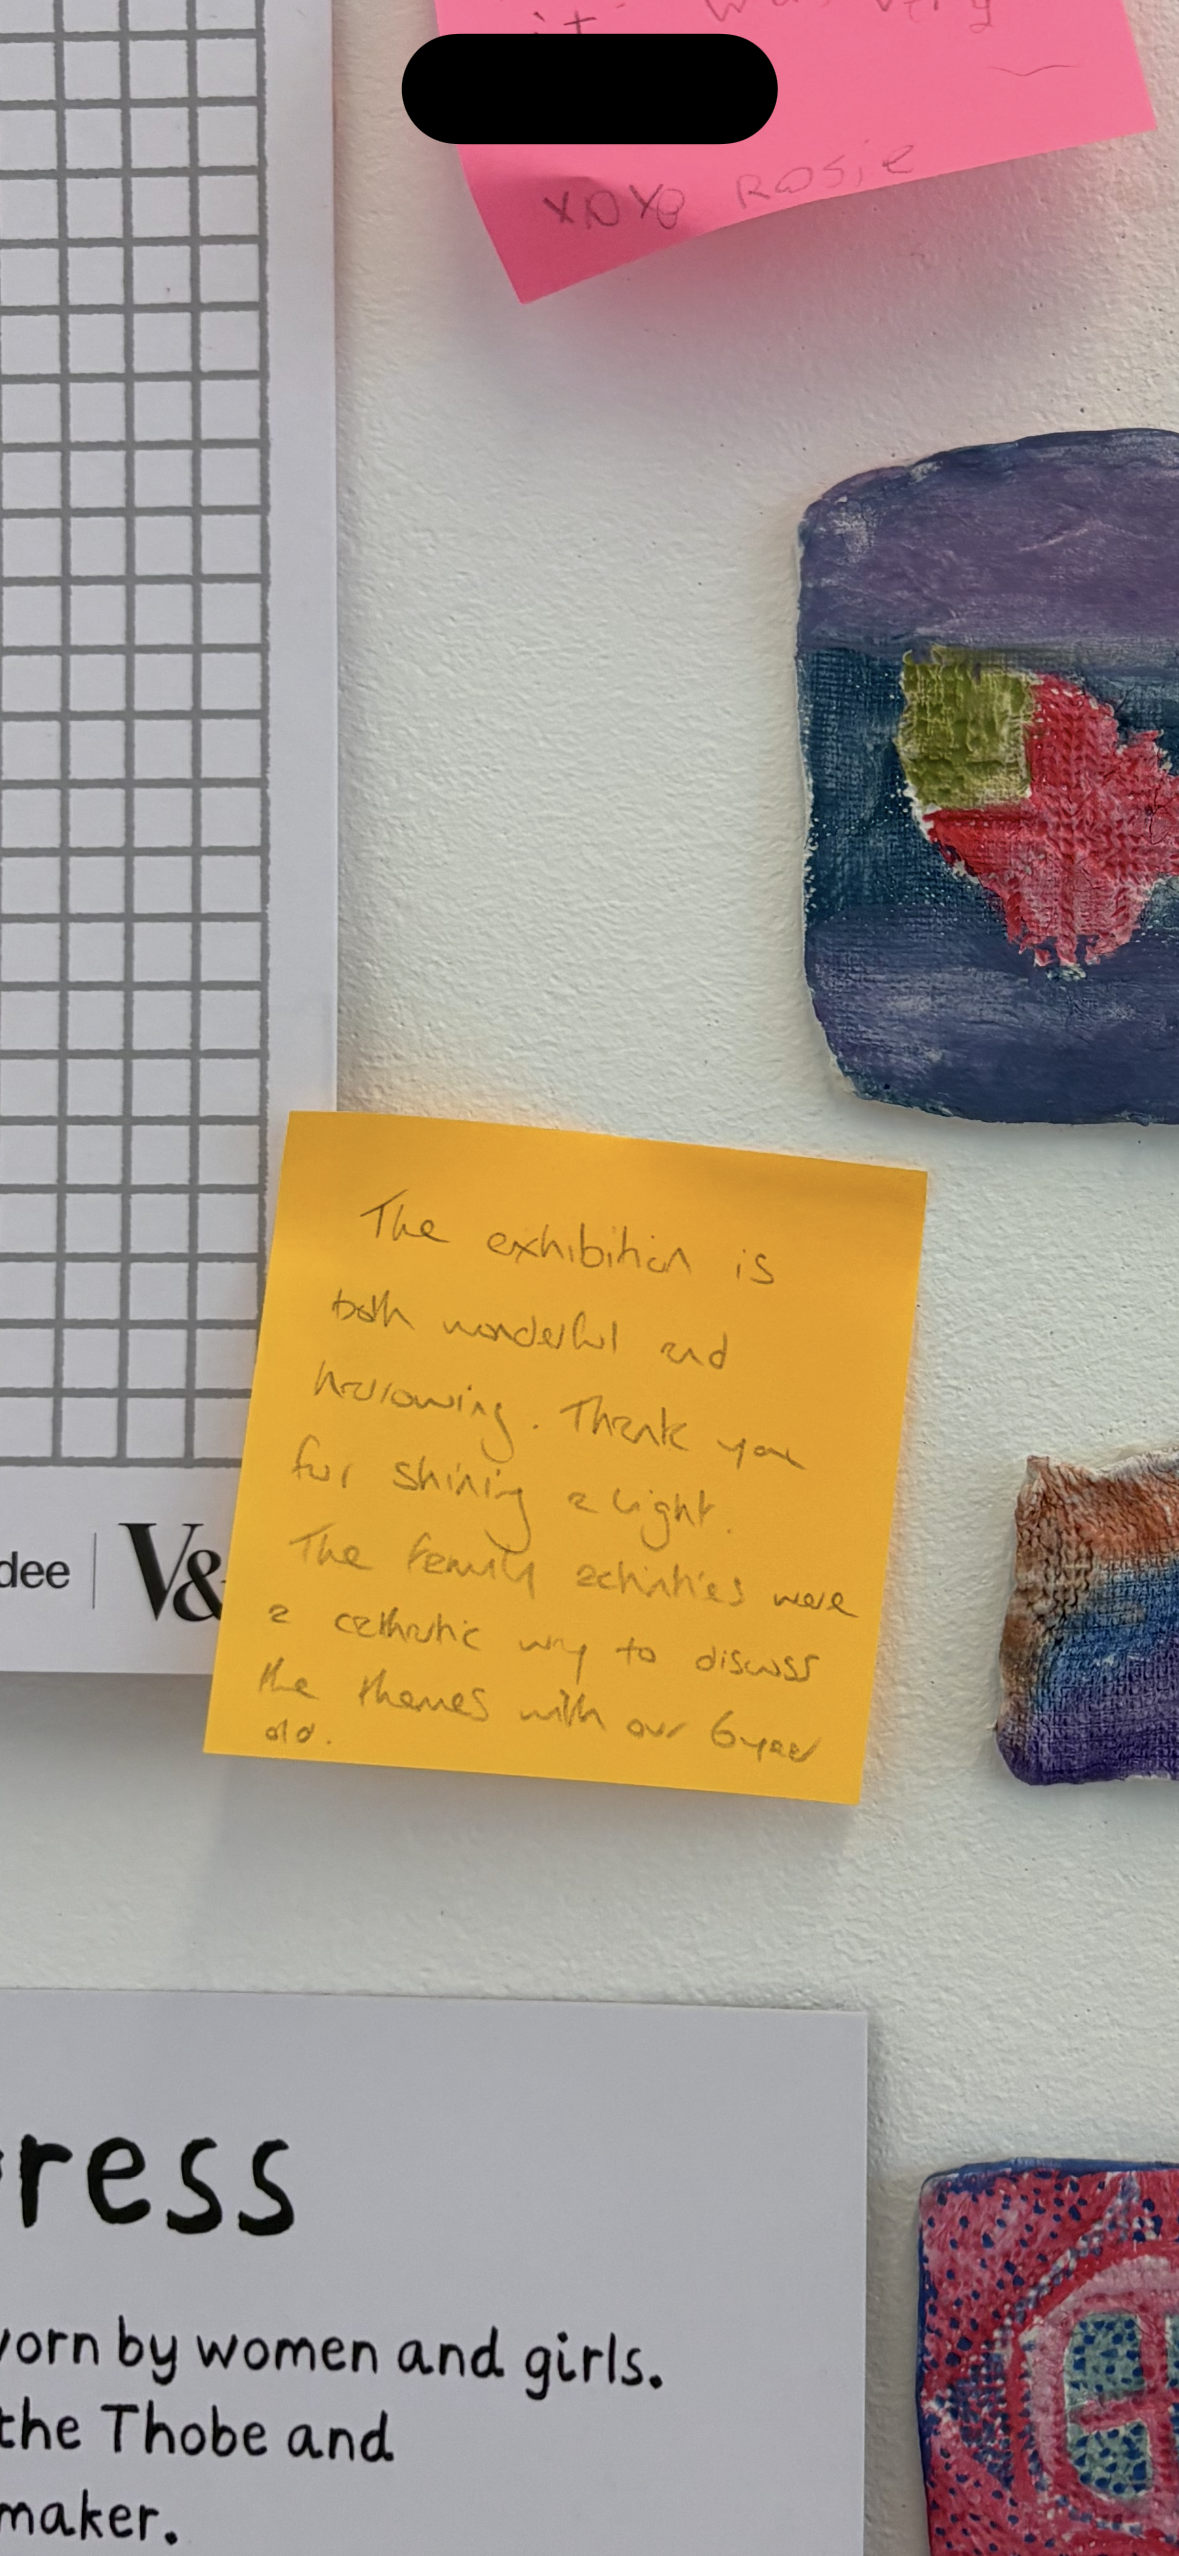 it. was very
xoxo Rosie
The exhibition is
both wonderful and
harrowing. Thank you
for shining a light.
The family activities were
a cathartic way to discuss
the themes with our 6 year
old.
dee | V&
ress
orn by women and girls.
the Thobe and
maker.